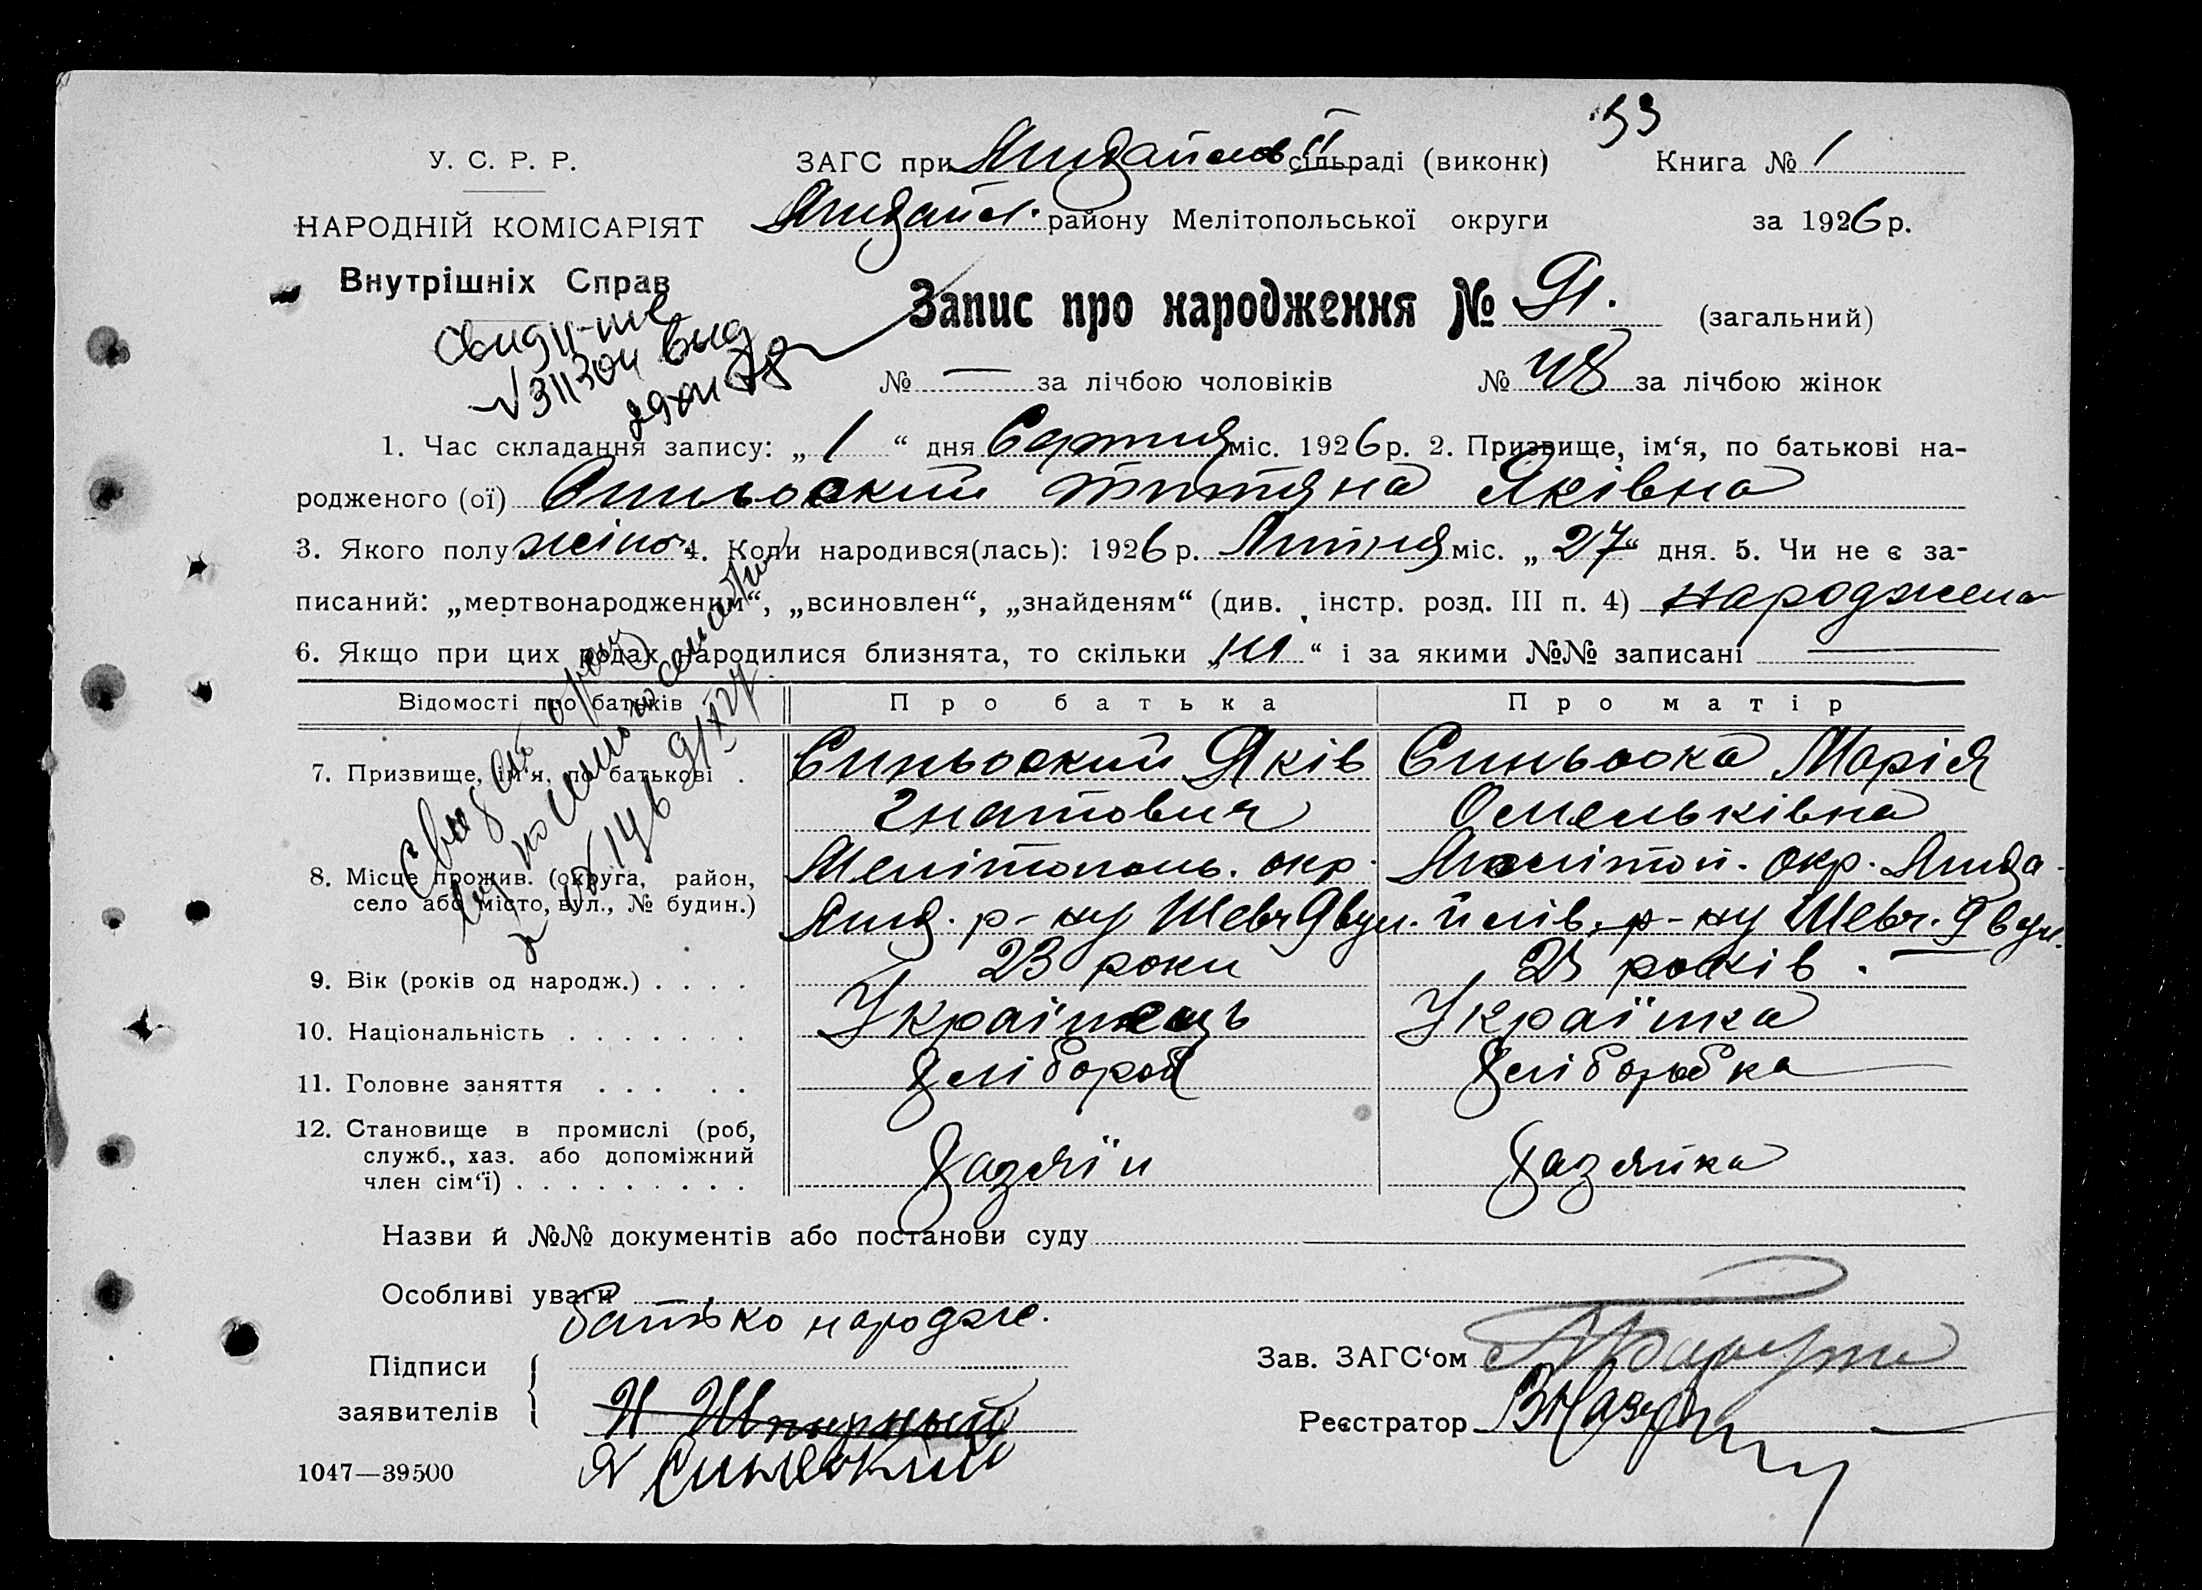 53
У. С. Р. Р. ЗАГС при сільраді (виконк) Книга № 1
НАРОДНІЙ КОМІСАРІЯТ району Мелітопольської округи за 1926 р.
Внутрішніх Справ
Запис про народження № 91. (загальний)
выд
№ — за лічбою чоловіків № 48 за лічбою жінок
1. Час складання запису: „ 1 “ дня Серпня міс. 1926 р. 2. Призвище, ім‘я, по батькові на-
родженого (ої) Синьоокий Яківна
3. Якого полу жіноч. 4. Коли народився(лась): 1926 р. Липня міс. „ 27 “ дня. 5. Чи не є за-
писаний: „мертвонародженим“, „всиновлен“, „знайденям“ (див. інстр. розд. III п. 4) народжена
6. Якщо при цих родах народилися близнята, то скільки „ні“ і за якими №№ записані —
Відомості про батьків Про батька Про матір
7. Призвище, ім‘я, по батькові . Синьоокий Яків Синьоока Марія
Гнатович Омельківна
8. Місце прожив. (округа, район, Мелітополь. окр. Меліт. окр.
село або місто, вул., № будин.) р-ну Шевч р-ну Шевч.
9. Вік (років од народж.) . . . . 23 роки 23 років .
10. Національність . . . . . . . Українець Українка
11. Головне заняття . . . . . Хлібороб Хліборобка
12. Становище в промислі (роб,
служб., хаз. або допоміжний Хазяїн Хазяйка
член сім‘ї) . . . . . . . . .
Назви й №№ документів або постанови суду —
Особливі уваги
батько народже.
Підписи Зав. ЗАГС‘ом
заявителів Реєстратор
1047—39500 Я Синеокий